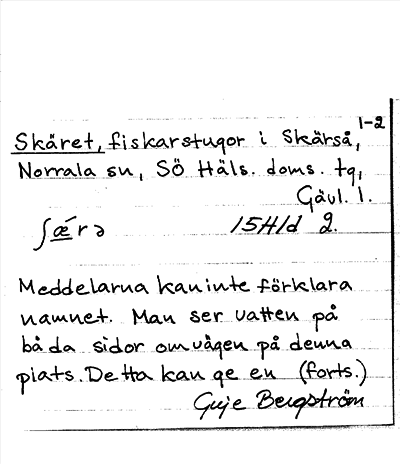 1-2
Skäret, fiskarstugor i Skärså,
Norrala sn, SÖ Häls. doms. tg,
Gävl. l.
ʃǽrə 15H1d 2.
Meddelarna kan inte förklara
namnet. Man ser vatten på
båda sidor om vägen på denna
plats. Detta kan ge en (forts.)
Guje Bergström